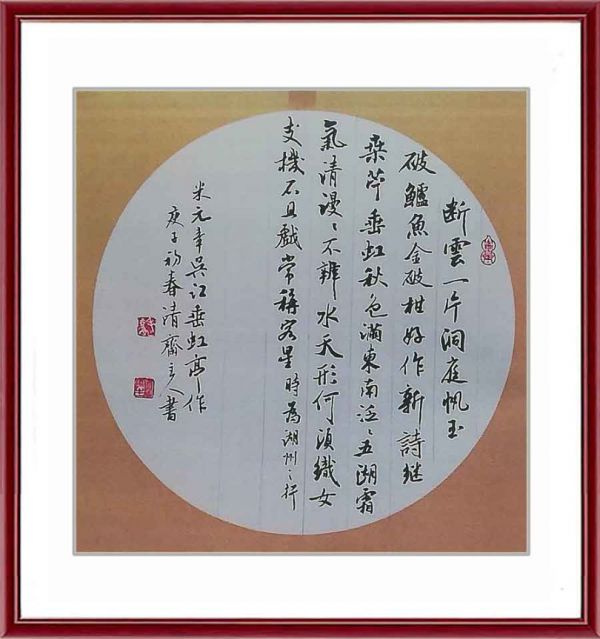 断雲一片洞庭帆玉
破鱸魚金破柑好作新詩继
桒苧垂虹秋色滿東南泛〻五湖霜
氣清漫〻不辨水天形何須織女
支機石且戲常稱客星時為湖州之行
米元章吳江垂虹亭作
庚子初春清齋主人書